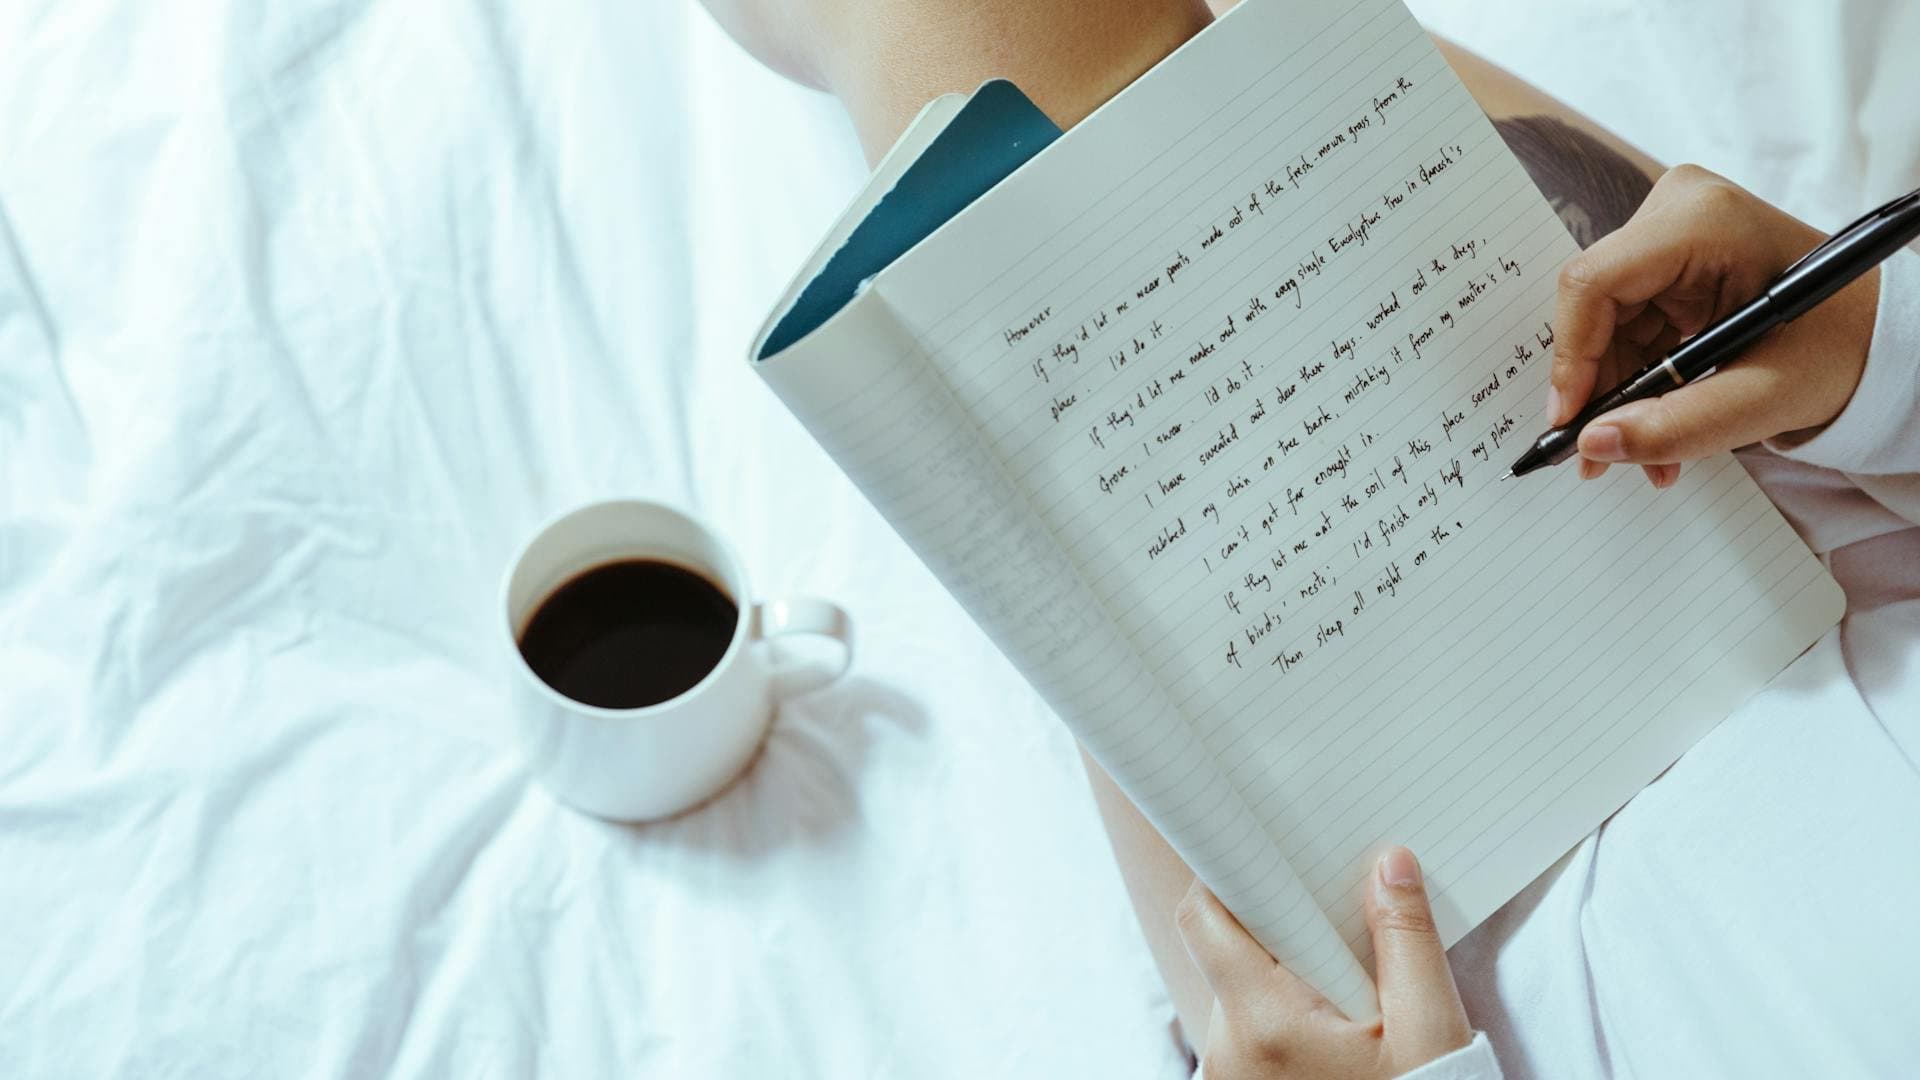 However
If they'd let me wear pants made out of the fresh-mown grass from the
place. I'd do it.
If they'd let me make out with every single Eucalyptus tree in Ganesh's
Grove, I swear. I'd do it.
I have sweated out dew these days. worked out the dregs,
rubbed my chin on tree bark, mistaking it from my master's leg
I can't get far enought in.
If they let me eat the soil of this place served on the bed
of birds' nests; I'd finish only half my plate.
Then sleep all night on the